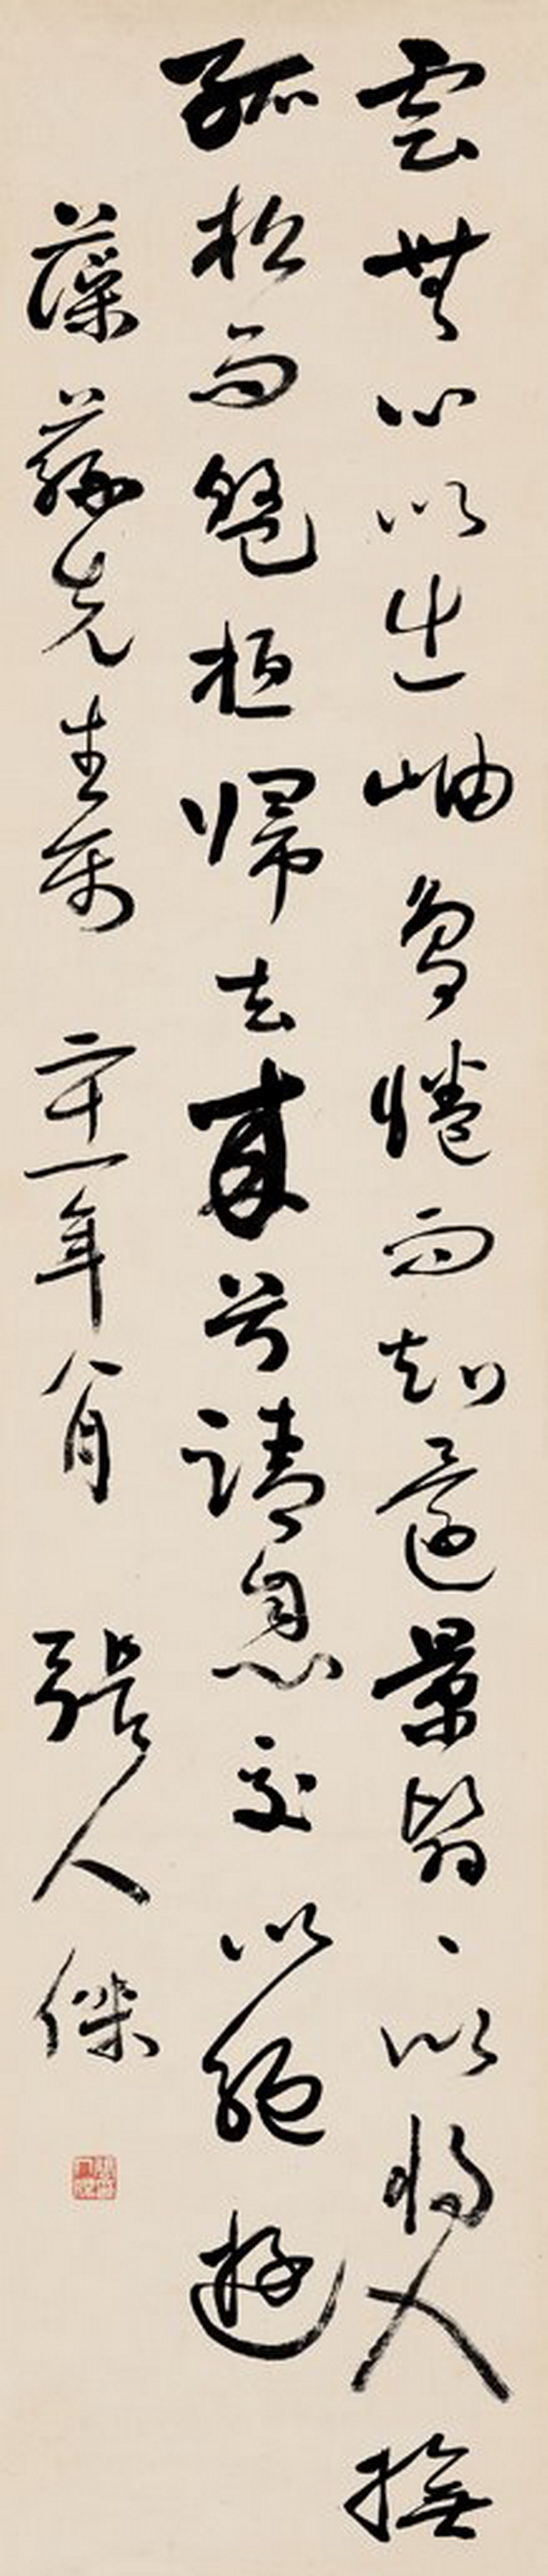 雲無心以出岫鳥倦而知還景翳、以將入撫
孤松而盤桓歸去來兮請息交以絕遊
藻蓀先生素 二十一年八月 張人傑